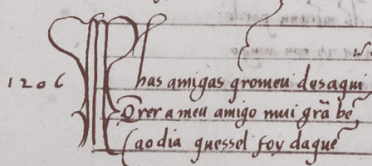 1206 Mhas amigas qromeu desaqui
Qrer a meu amigo mui grã bẽ
Cao dia quessel foy daquẽ